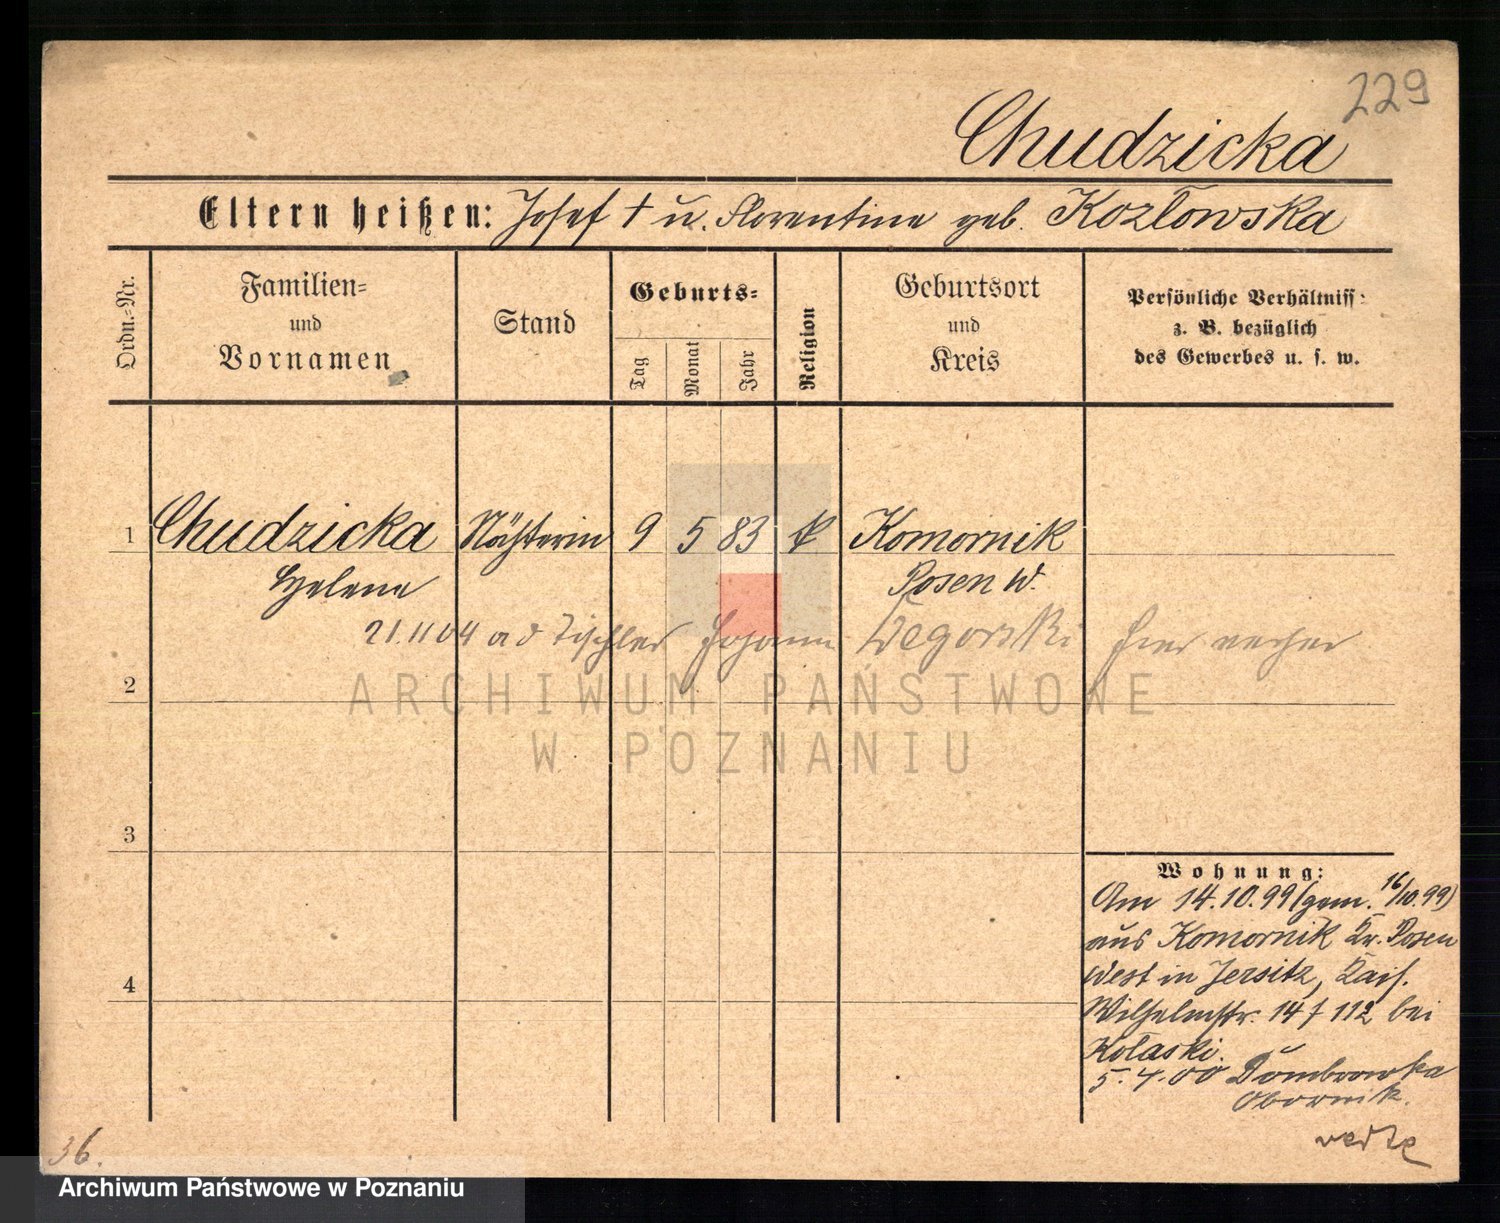 229
Chudzicka
Eltern heißen: Josef † u. Florentine geb. Kozłowska
Ordn.-Nr.
Familien- und Vornamen
Stand
Geburts-
Tag
Monat
Jahr
Religion
Geburtsort und Kreis
Persönliche Verhältniss: z. B. bezüglich des Gewerbes u. s. w.
1 Chudzicka Nähterin 9 5 83 k Komornik
Helene Posen W.
21.11 04 ad Tischler Johann Wegorski hier verher
2
ARCHIWUM PAŃSTWOWE
W POZNANIU
3
Wohnung:
Am 14.10.99 (gem. 16/10.99)
aus Komornik Kr. Posen
West in Jersitz, Kais.
4
Wilhelmstr. 14 f 112 bei
Kołaski.
5.4.00 Dombrowka
Obornik.
verte
36.
Archiwum Państwowe w Poznaniu